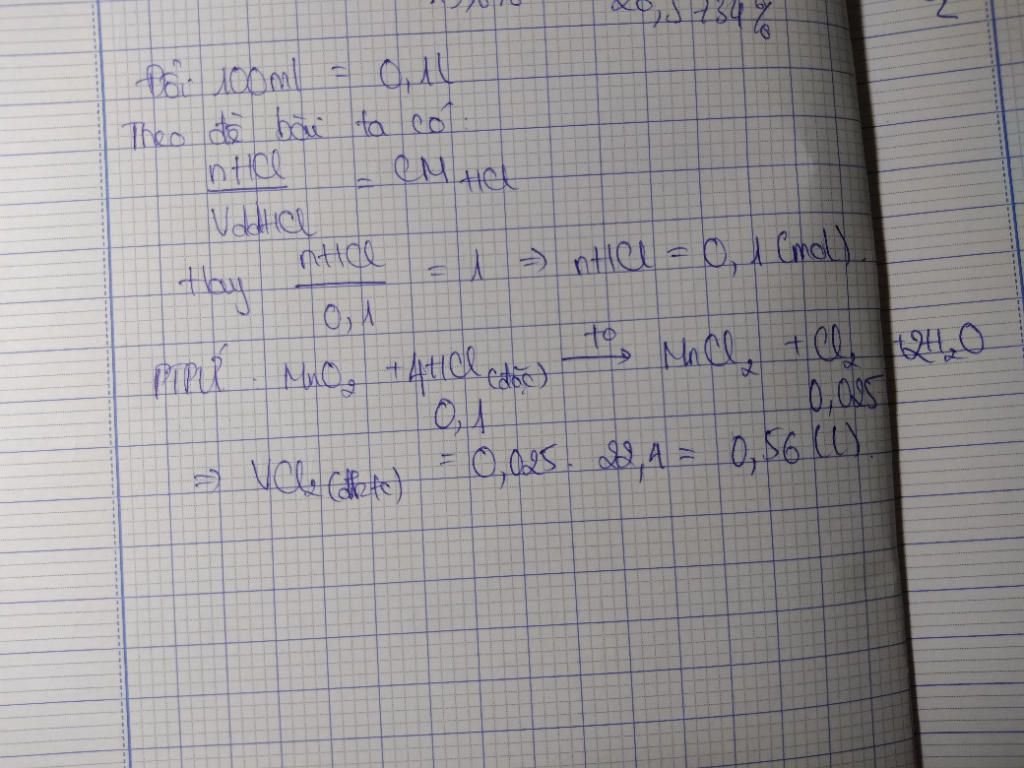 28,5734%
Đổi 100ml = 0,1l
Theo đề bài ta có:
nHCl / VddHCl = CM HCl
Hay nHCl / 0,1 = 1 ⇒ nHCl = 0,1 (mol).
PTPƯ: MnO₂ + 4HCl (đặc) —t°→ MnCl₂ + Cl₂ + 2H₂O
0,1 0,025
⇒ VCl₂ (đktc) = 0,025. 22,4 = 0,56 (l).